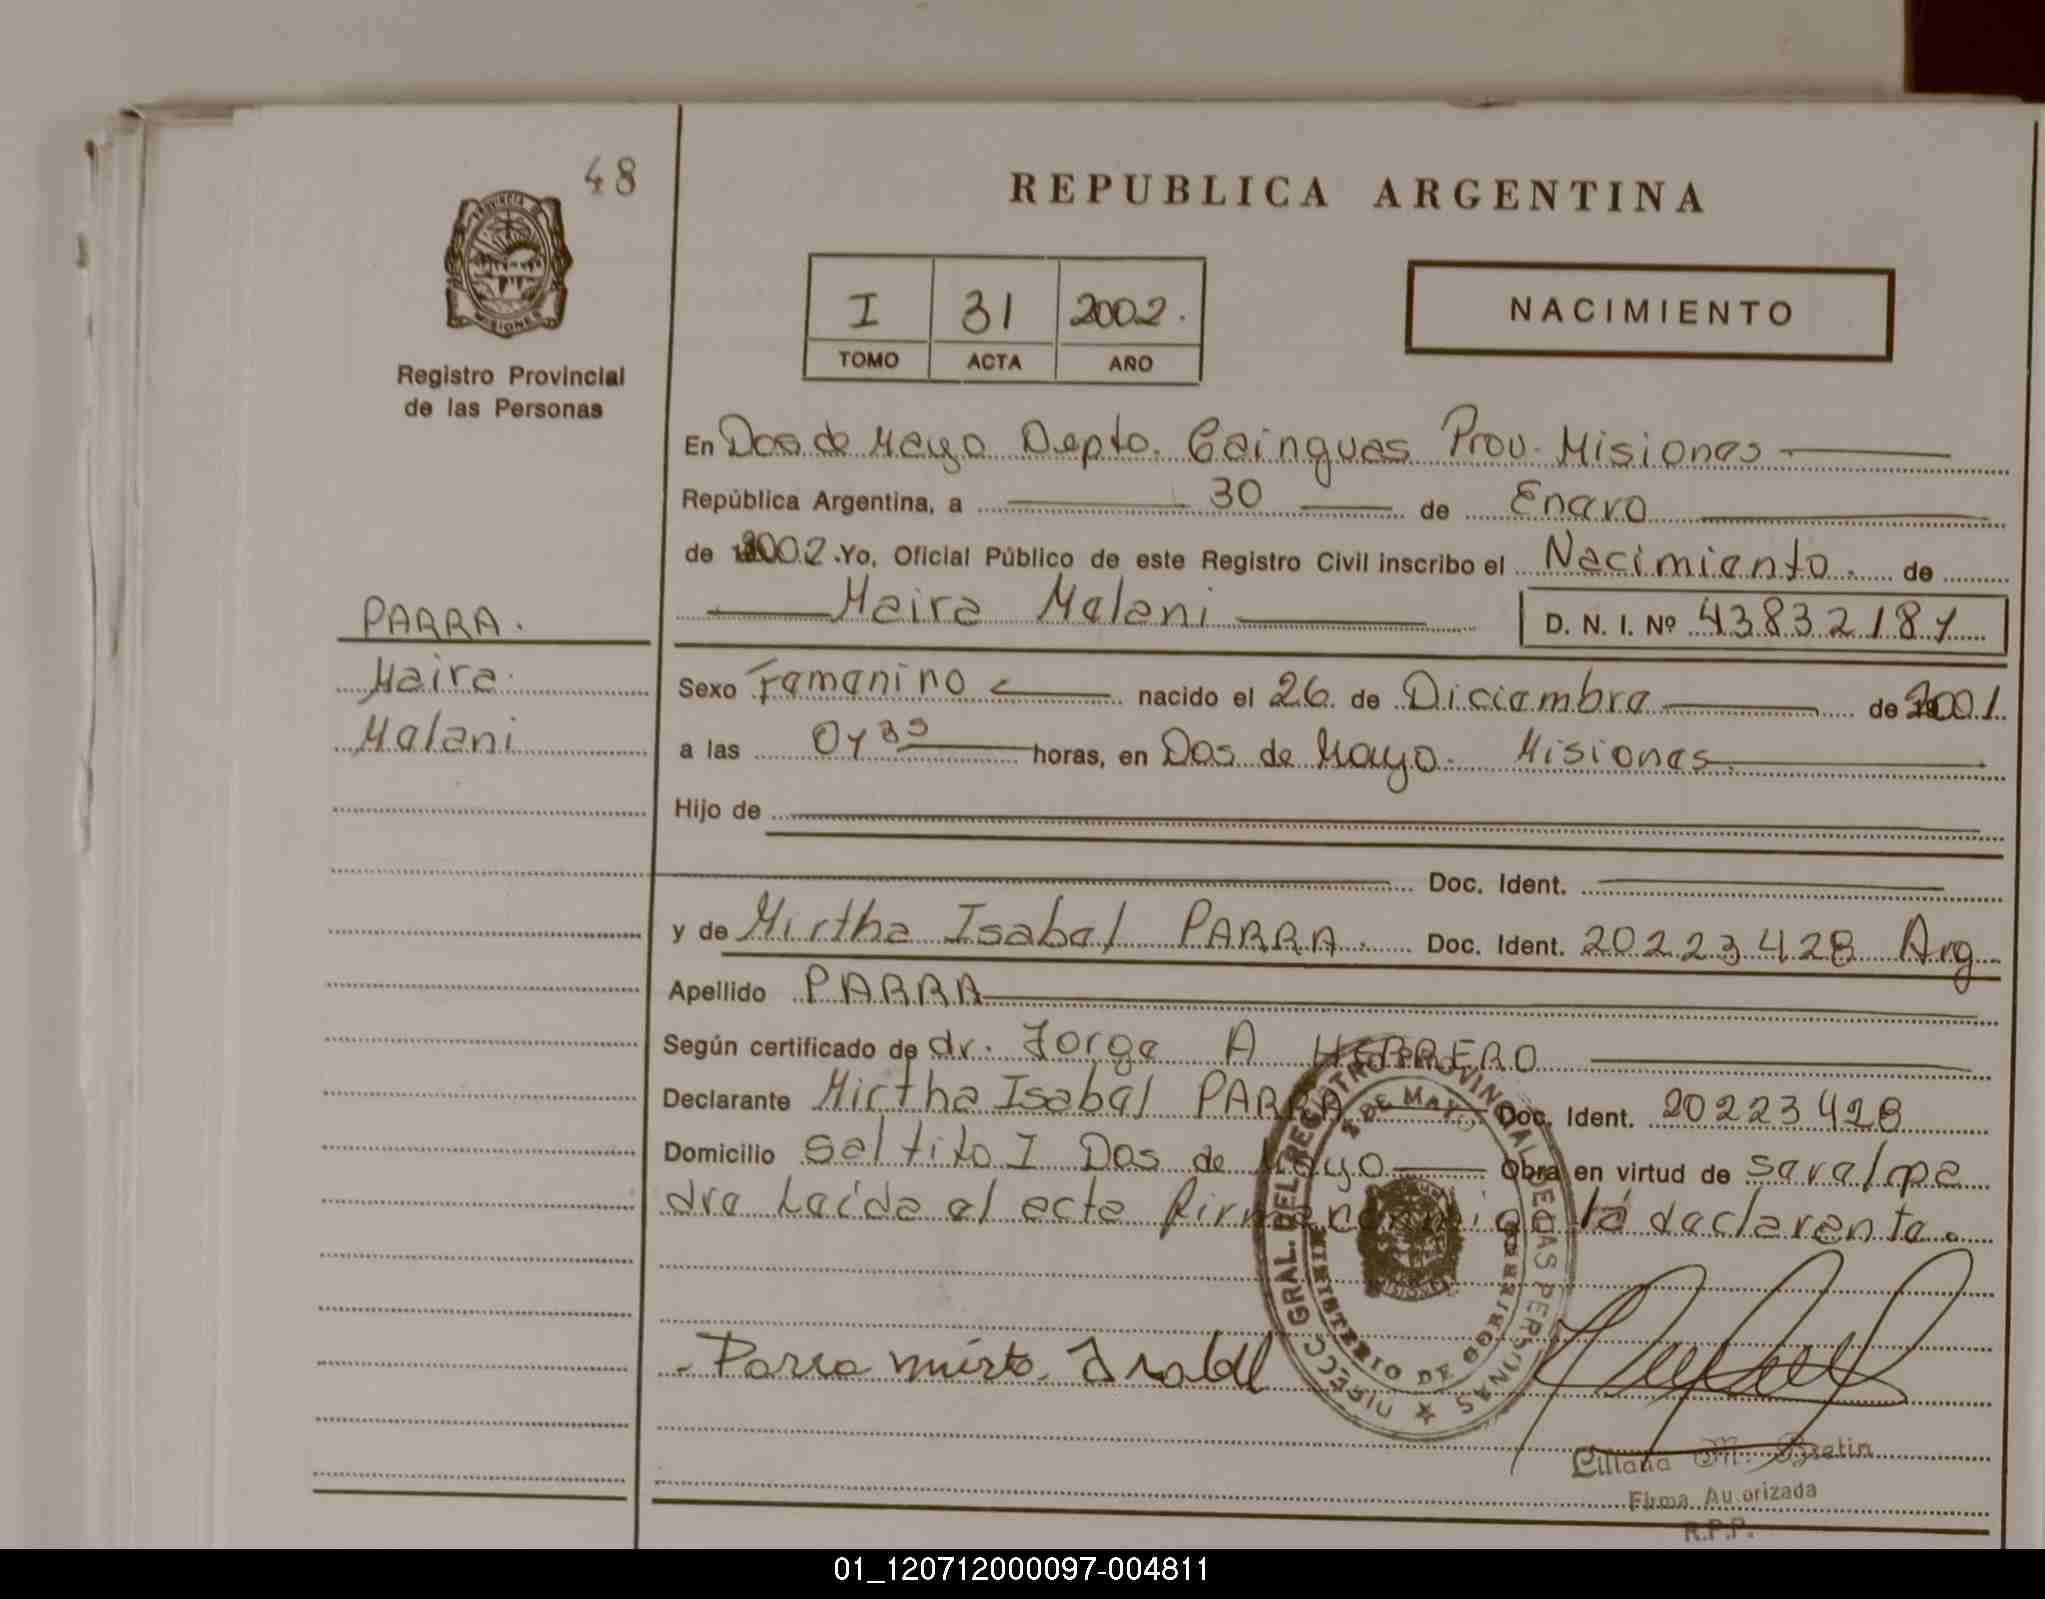 48
PROVINCIA DE
MISIONES
Registro Provincial
de las Personas
REPUBLICA ARGENTINA
I 31 2002.
TOMO ACTA AÑO
NACIMIENTO
En Dos de Mayo Depto. Cainguas Prov. Misiones
República Argentina, a 30 de Enero
de 2002. Yo, Oficial Público de este Registro Civil inscribo el Nacimiento. de
Maira Malani D. N. I. Nº 43832187
PARRA.
Maira
Malani
Sexo Femenino nacido el 26 de Diciembre de 2001.
a las horas, en Dos de Mayo. Misiones
Hijo de
Doc. Ident.
y de Mirtha Isabel PARRA. Doc. Ident. 20223428 Arg
Apellido PARRA
Según certificado de dr. Jorge A HERRERO
Declarante Mirtha Isabel PARRA Doc. Ident. 20223428
Domicilio Saltito I Dos de Mayo Obra en virtud de ser al pa
dre Leída el acta firma la declarante.
DIRECC. GRAL. DEL REGISTRO PROVINCIAL DE LAS PERSONAS
2 DE MAYO
MINISTERIO DE GOBIERNO
Parra mirta Isabel
Liliana M.
Firma Autorizada
R.P.P.
01_120712000097-004811